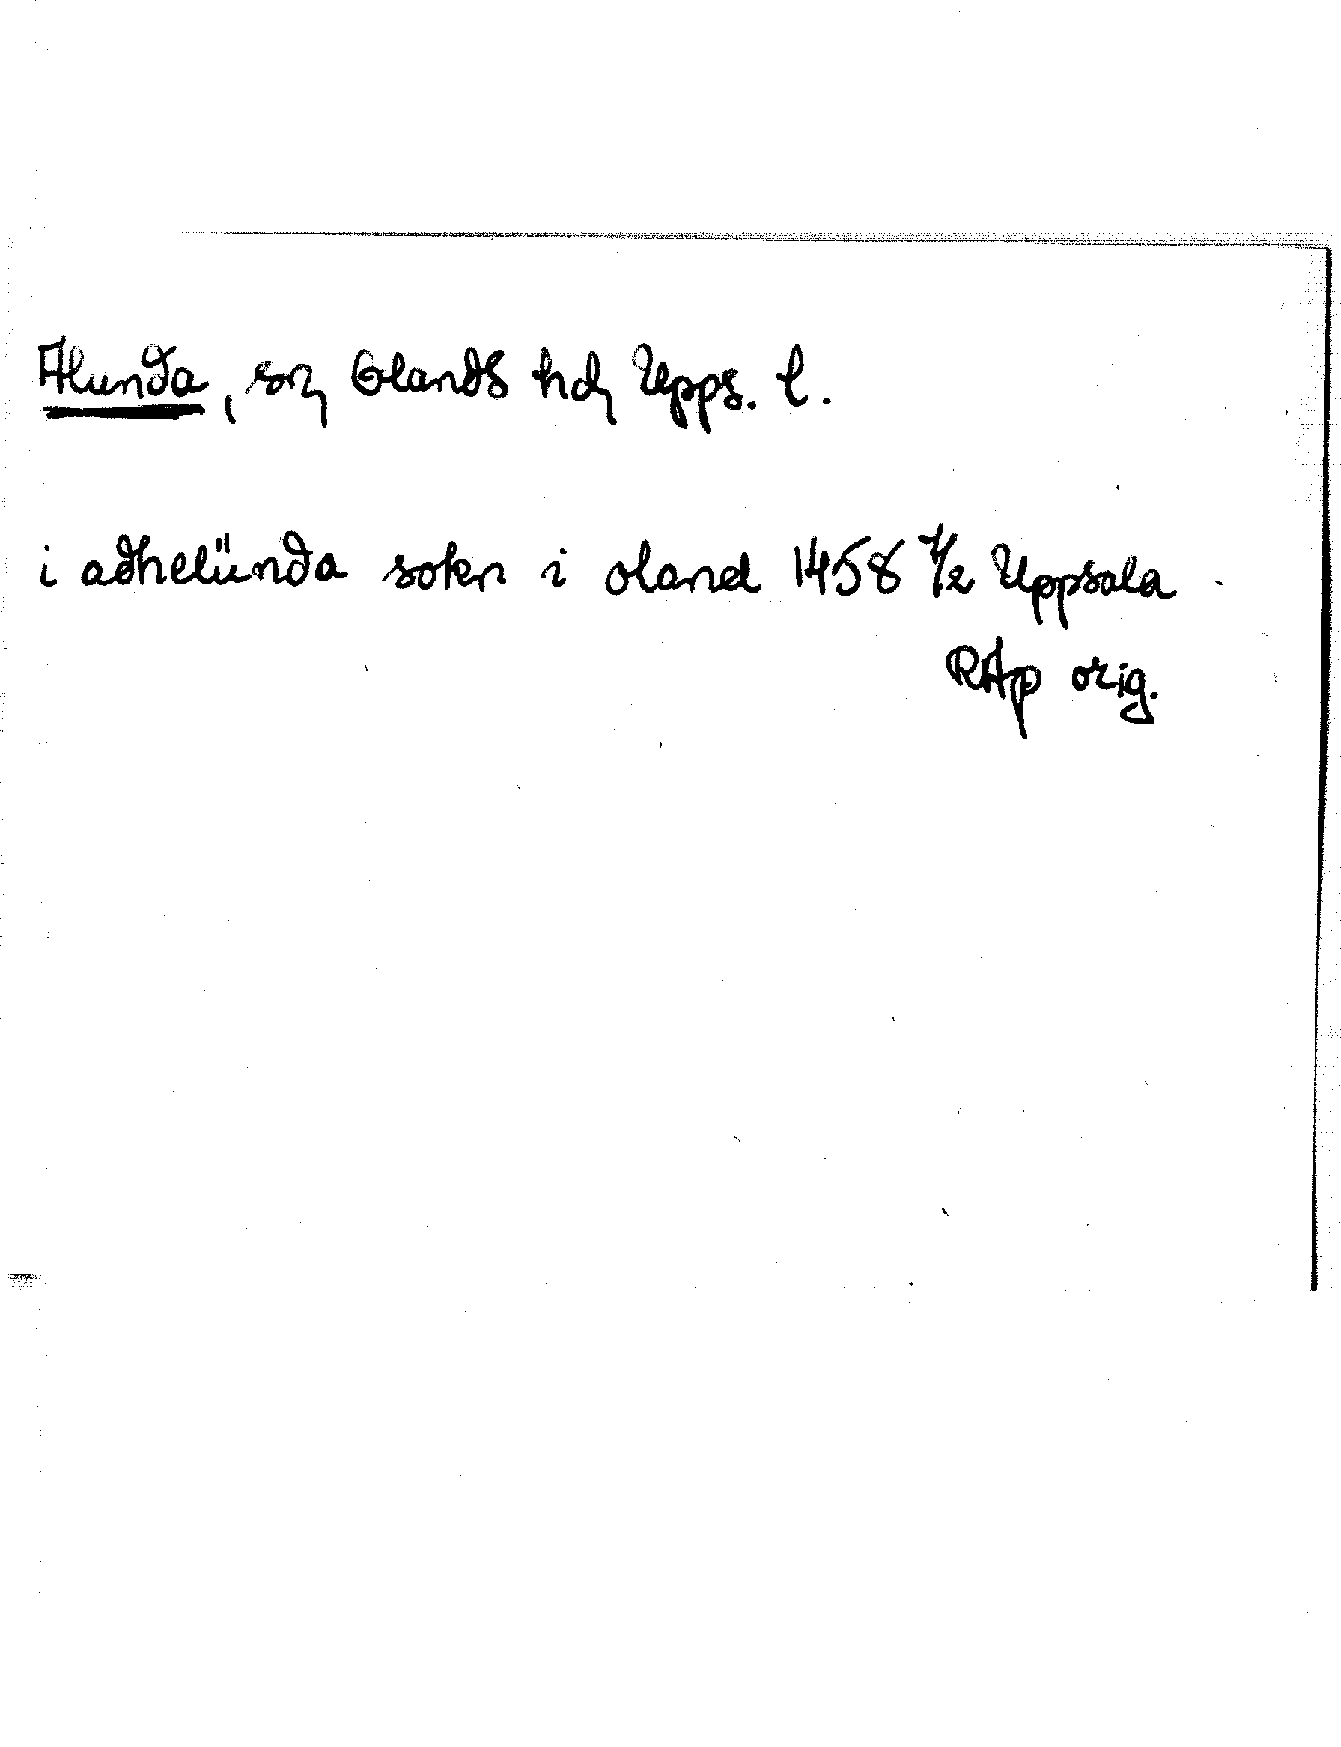 Alunda, sn, Olands hd, Upps. l.
i adhelünda sokn i oland 1458 7/2 Uppsala
RAp orig.